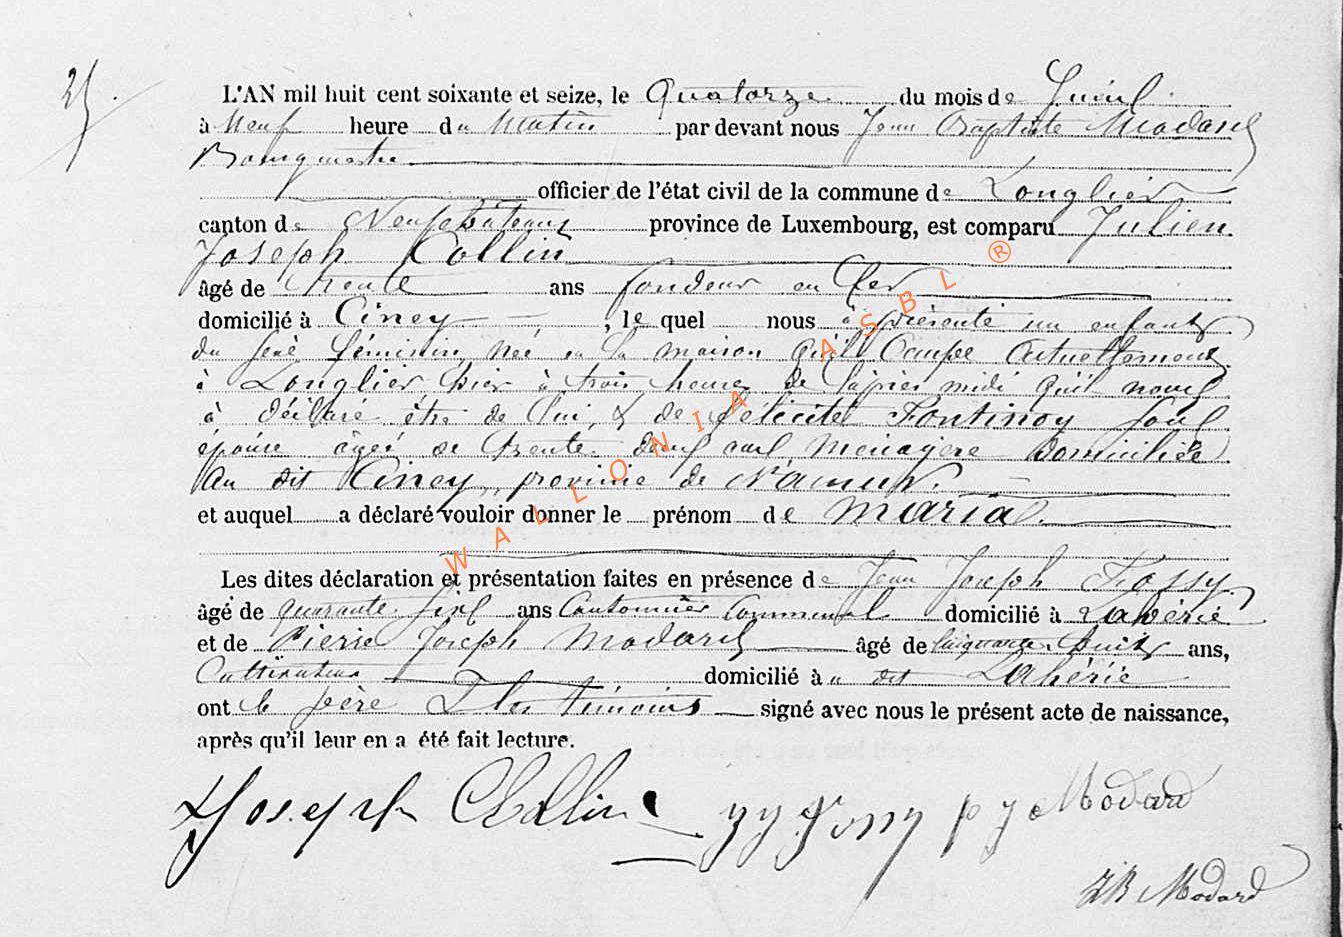 25.
L'AN mil huit cent soixante et seize, le Quatorze du mois de Juin
à Neuf heure du Matin par devant nous Jean Baptiste Modard
Bourgmestre
officier de l'état civil de la commune de Longlier
canton de Neufchâteau province de Luxembourg, est comparu Julien
Joseph Collin
âgé de trente ans fondeur en fer
domicilié à Ciney, le quel nous à présenté un enfant
du sexe féminin, Née en la maison qu'il Occupe Actuellement
à Longlier hier à trois heures de l'après midi qu'il nous
à déclaré être de lui & de félicité Fontinoy son
épouse âgée de trente deux ans, Ménagère domiciliée
Au dit Ciney, province de Namur.
et auquel a déclaré vouloir donner le prénom de Maria.
Les dites déclaration et présentation faites en présence de Jean Joseph Fossy
âgé de quarante sept ans Cantonnier Communal domicilié à Lahérie
et de Pierre Joseph Modard âgé de Cinquante huit ans,
Cultivateur domicilié au dit Lahérie
ont le père & les témoins signé avec nous le présent acte de naissance,
après qu'il leur en a été fait lecture.
Joseph Collin JJ Fossy p j Modard
JB Modard
WALLONIA ASBL ®